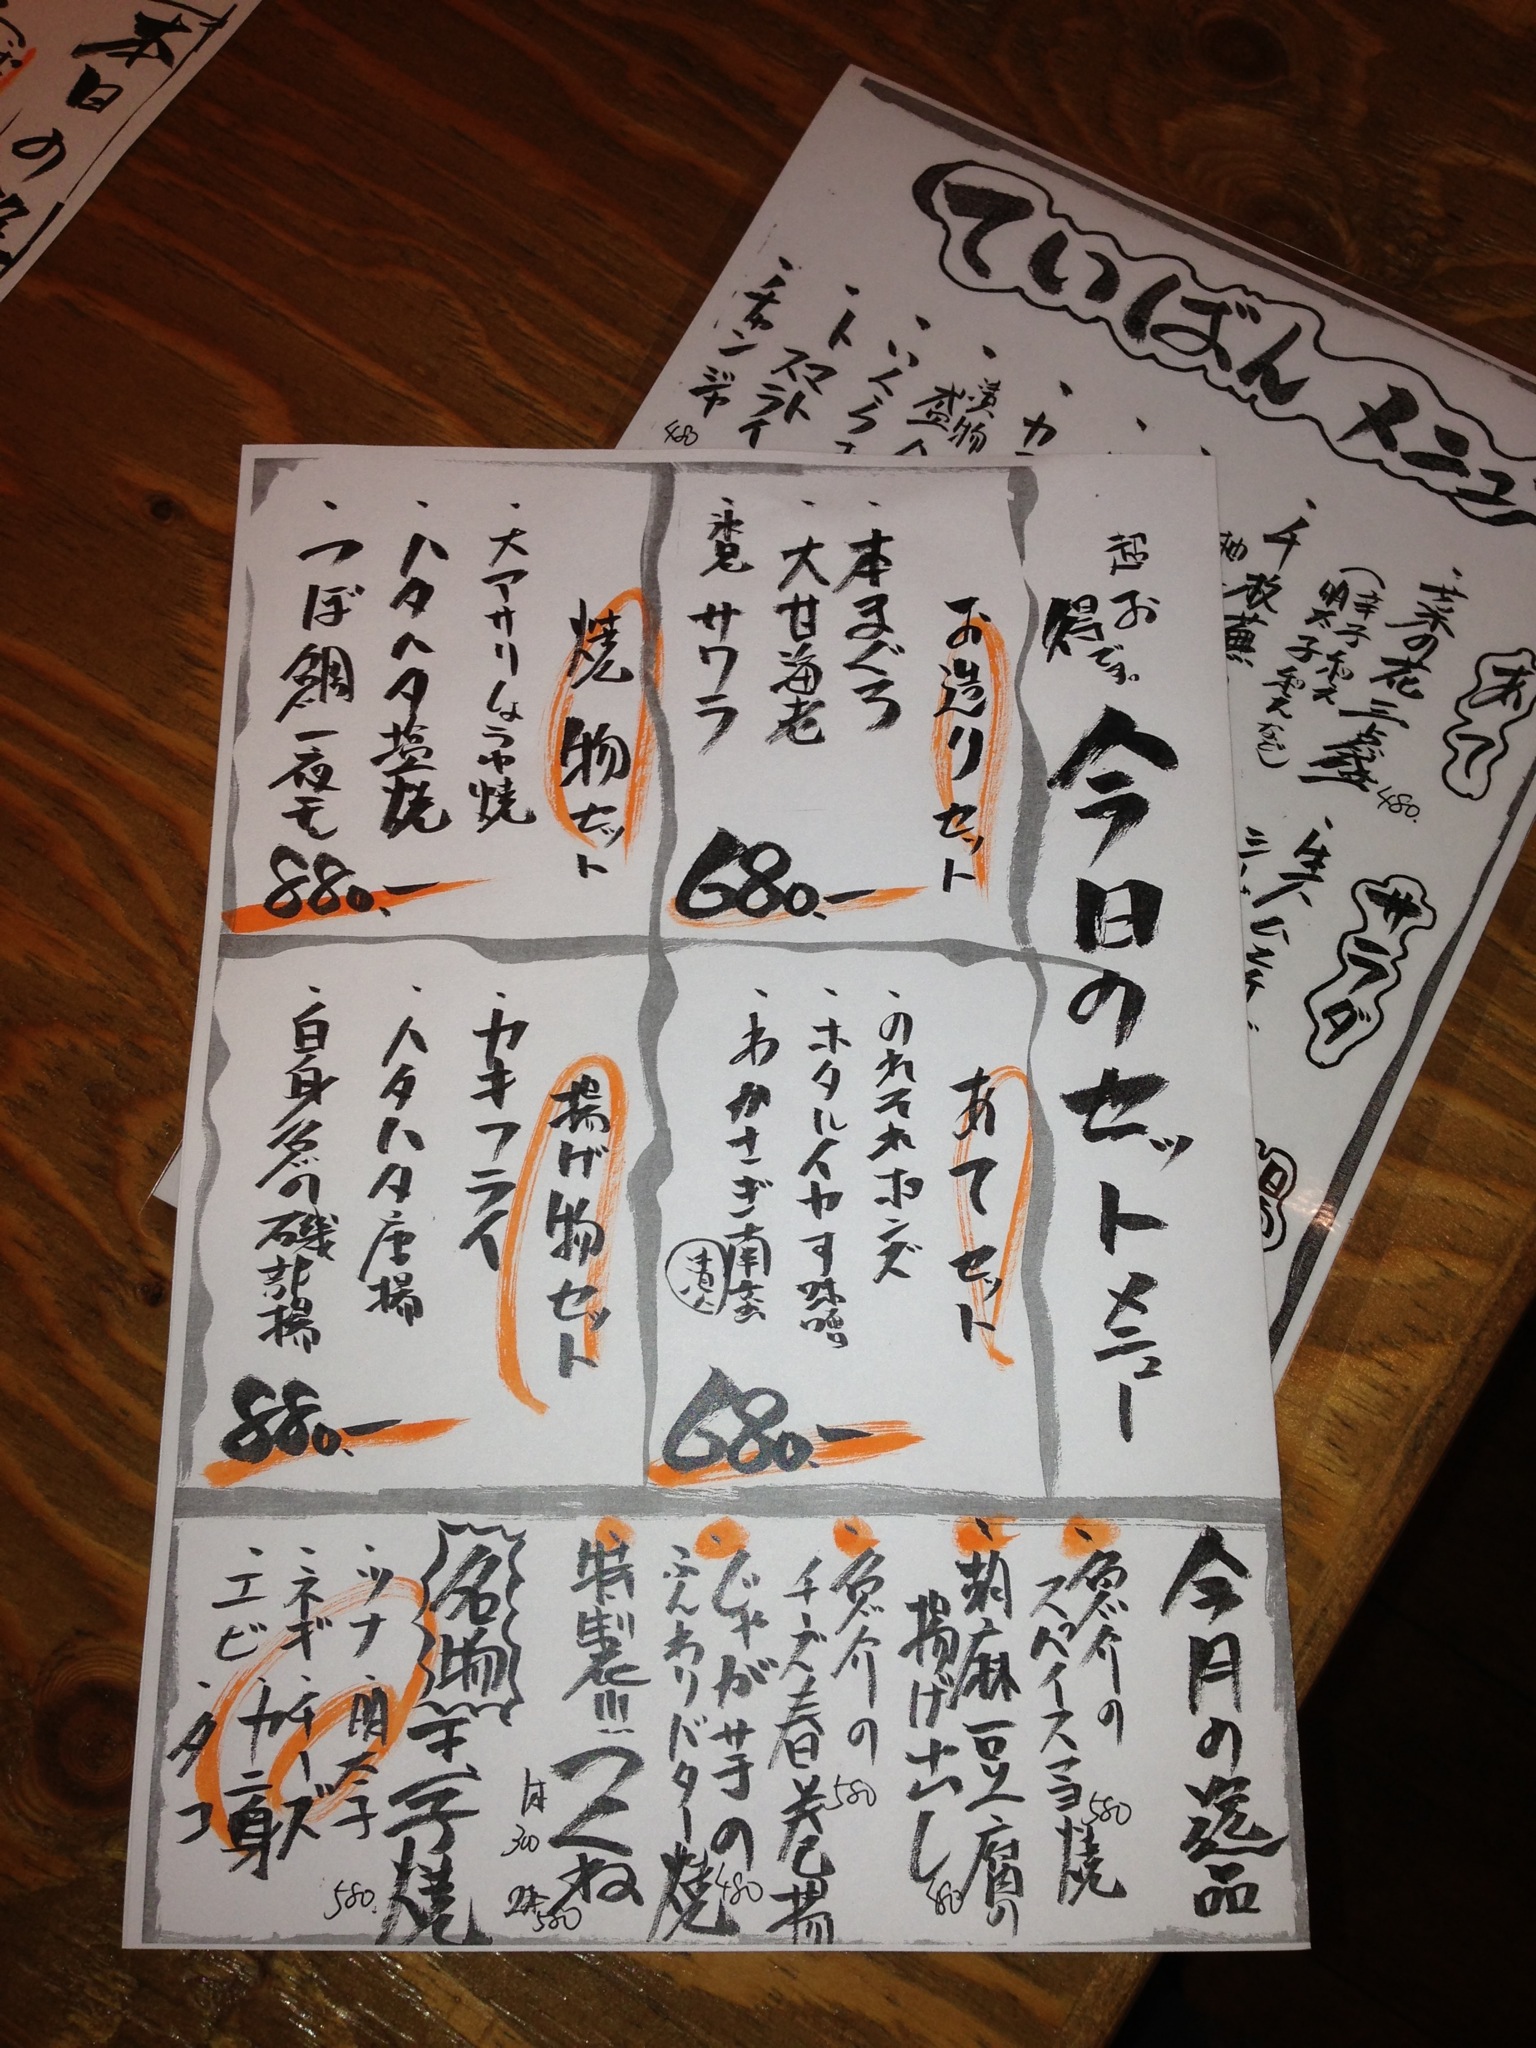 超お得です。
今日のセットメニュー
お造りセット
・本まぐろ
・大甘海老
・サワラ
680.-
焼物セット
・大アサリしょうゆ焼
・ハタハタ塩焼
・つぼ鯛一夜干
880.-
あてセット
・のれそれポンズ
・ホタルイカす味噌
・わかさぎ南蛮漬
680.-
揚げ物セット
・カキフライ
・ハタハタ唐揚
・白身魚の磯部揚
880.-
今月の逸品
・魚介の
スパイスマヨ焼
580
・胡麻豆腐の
揚げ出し
480
・魚介の
チーズ春巻揚
580
・じゃが芋の
ふんわりバター焼
480
・特製!!!つくね
1本300
2本580
名物玉子焼
580
・ツナ
・明太子
・ネギ
・チーズ
・エビ
・カニ身
・タコ
ていばんメニュ
あて
・菜の花三種盛
480.
明太子ポン
・千枚
・漬物盛
・いくら
・トマトスライ
・チャンジャ
480
サラダ
本日の